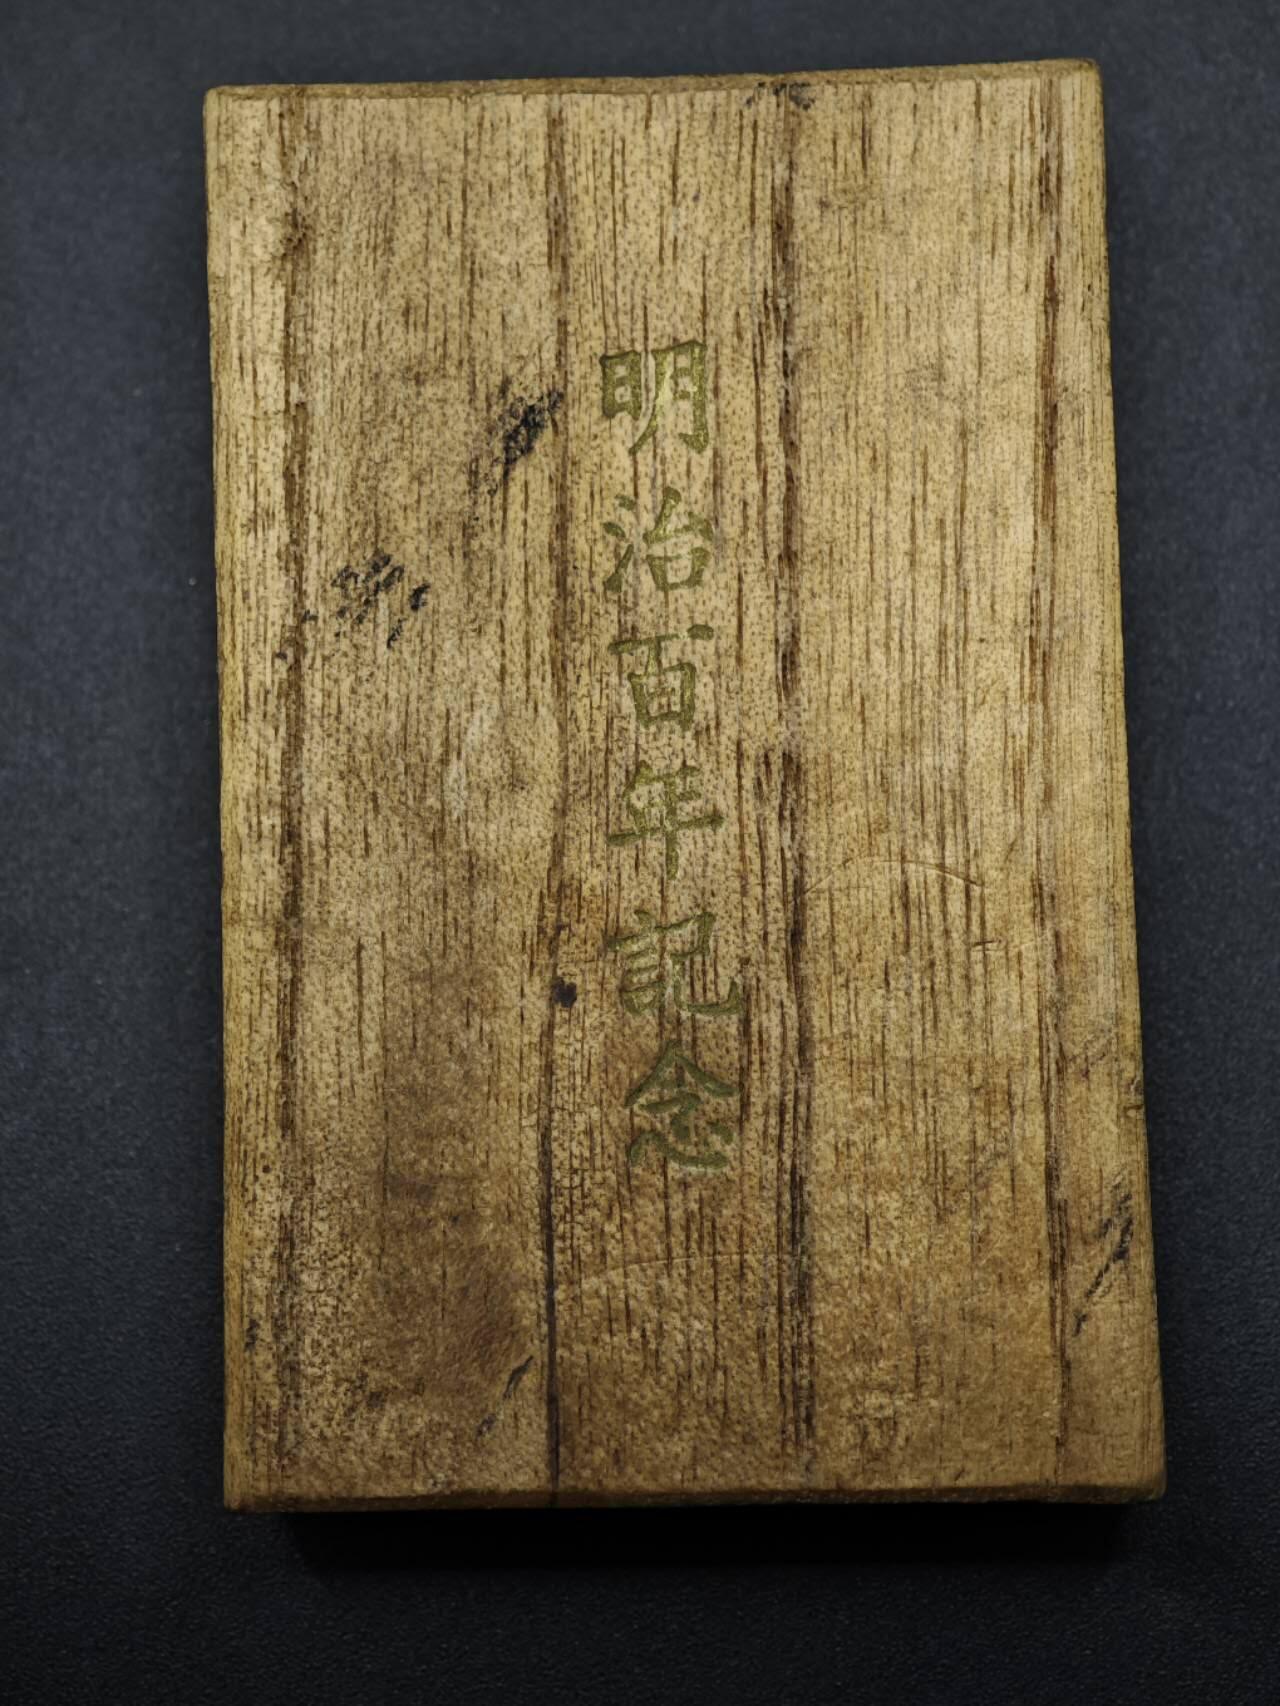 明治百年記念